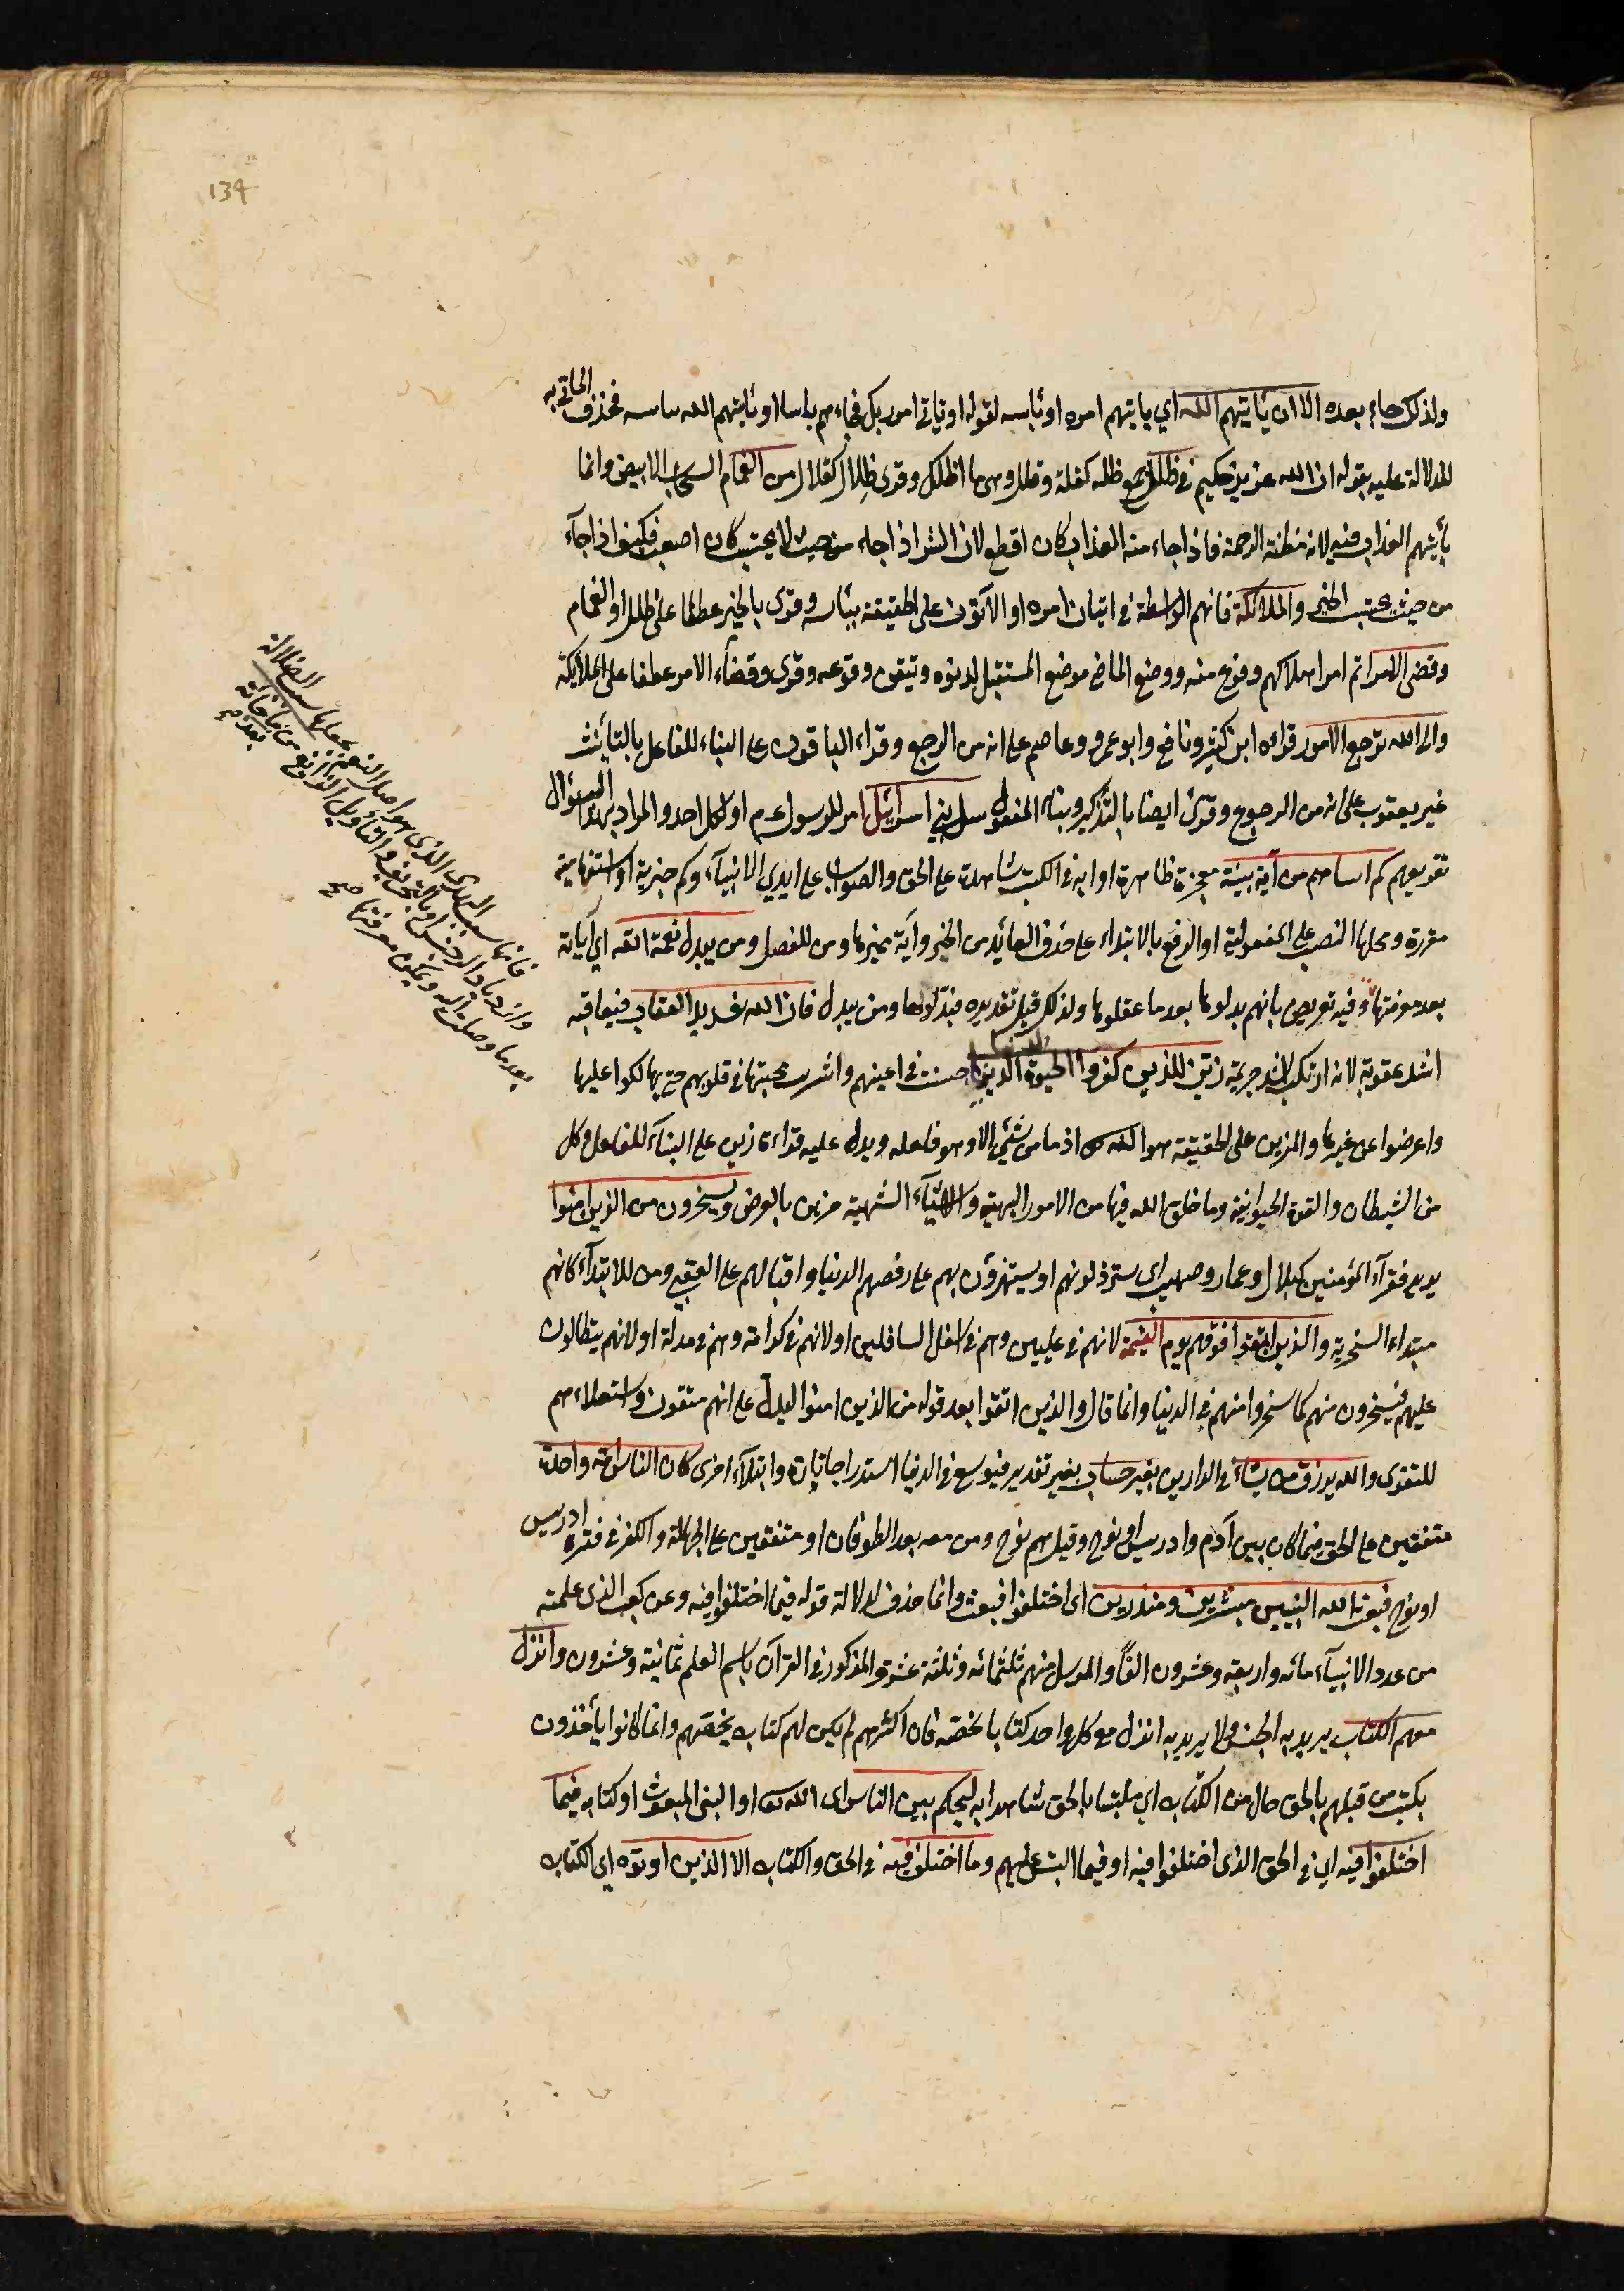 134
ولذلك جاء بعده الا ان يأتيهم الله اي يأتيهم امره او بأسه لقوله او يأتي امر ربك فجاءهم باسنا او يأتيهم الله ببأسه فحذف المأتي به
للدلالة عليه بقوله ان الله عزيز حكيم في ظلل جمع ظلة كقلة وقلل وهي ما اظلك وقرئ ظلال كقلال من الغمام السحاب الابيض وانما
يأتيهم العذاب فيه لانه مظنة الرحمة فاذا جاء منه العذاب كان افظع لان الشر اذا جاء من حيث لا يحتسب كان اصعب فكيف اذا جآء
من حيث يحتسب الخير والملائكة فانهم الواسطة في اتيان امره او الآتون على الحقيقة ببأسه وقرئ بالجر عطفا على ظلل او الغمام
وقضى الامر اتم امر اهلاكهم وفرغ منه ووضع الماضي موضع المستقبل لدنوه وتيقن وقوعه وقرئ وقضاء الامر عطفا على الملائكة
والى الله ترجع الامور قراءه ابن كثير ونافع وابو عمرو وعاصم على انه من الرجع وقراء الباقون على البناء للفاعل بالتأنيث
غير يعقوب على انه من الرجوع وقرئ ايضا بالتذكير وبناء المفعول سل بني اسرائيل امر للرسول عم او لكل احد والمراد بهذا السؤال
تقريعهم كم اتيناهم من آية بينة معجزة ظاهرة او اية في الكتب شاهدة على الحق والصواب على ايدي الانبيآء وكم خبرية او استفهامية
مقررة ومحلها النصب على المفعولية او الرفع بالابتداء على حذف العائد من الخبر وآية مميزها ومن للفصل ومن يبدل نعمة الله اي آياته
بعد معرفتها وفيه تعريض بانهم بدلوها بعد ما عقلوها ولذلك قيل تقديره فبدلوها ومن يبدل فان الله شديد العقاب فيعاقبه
اشد عقوبة لانه ارتكب اشد جريمة زين للذين كفروا الحيوة الدنيا حسنت في اعينهم واشربت محبتها في قلوبهم حتى تهالكوا عليها
واعرضوا عن غيرها والمزين على الحقيقة هو الله اذ ما من شئ الا وهو فاعله ويدل عليه قراءة زين على البنآء للفاعل وكل
من الشيطان والقوة الحيوانية وما خلق الله فيها من الامور البهية والاشيآء الشهية مزين بالعرض ويسخرون من الذين امنوا
يريد فقرآء المؤمنين كبلال وعمار وصهيب اي يسترذلونهم او يستهزؤن بهم على رفضهم الدنيا واقبالهم على العقبى ومن للابتدآء كانهم
مبتداء السخرية والذين اتقوا فوقهم يوم القيمة لانهم في عليين وهم في اسفل السافلين او لانهم في كرامة وهم في مذلة او لانهم يتطاولون
عليهم فيسخرون منهم كما سخروا منهم في الدنيا وانما قال والذين اتقوا بعد قوله من الذين امنوا ليدل على انهم متقون واستعلاءهم
للتقوى والله يرزق من يشآء في الدارين بغير حساب بغير تقدير فيوسع في الدنيا استدراجا تارة وابتلآء اخرى كان الناس امة واحدة
متفقين على الحق فيما كان بين آدم وادريس او نوح وقيل هم نوح ومن معه بعد الطوفان او متفقين على الجهالة والكفر في فترة ادريس
او نوح فبعث الله النبيين مبشرين ومنذرين اي اختلفوا فبعث وانما حذف لدلالة قوله فيما اختلفوا فيه وعن كعب الذي علمته
من عدد الانبيآء مائه واربعة وعشرون الفًا والمرسل منهم ثلثمائه وثلثة عشر والمذكور في القرآن باسم العلم ثمانية وعشرون وانزل
معهم الكتاب يريد به الجنس ولا يريد به انزل مع كل واحد كتابا يخصه فان اكثرهم لم يكن لهم كتاب يخصهم وانما كانوا يأخذون
بكتب من قبلهم بالحق حال من الكتاب اي ملتبسا بالحق شاهدا به ليحكم بين الناس اي الله او النبي المبعوث او كتابه فيما
اختلفوا فيه اي في الحق الذي اختلفوا فيه او فيما التبس عليهم وما اختلف فيه في الحق والكتاب الا الذين اوتوه اي الكتاب
فانها سبب الهدى الذي هو اصل النعم بجعلها سبب الضلالة
وازدياد الرجس او بالتحريف والتأويل الزائغ من بعد ما جاءته
بعد ما وصلت اليه وتمكن من معرفتها صح